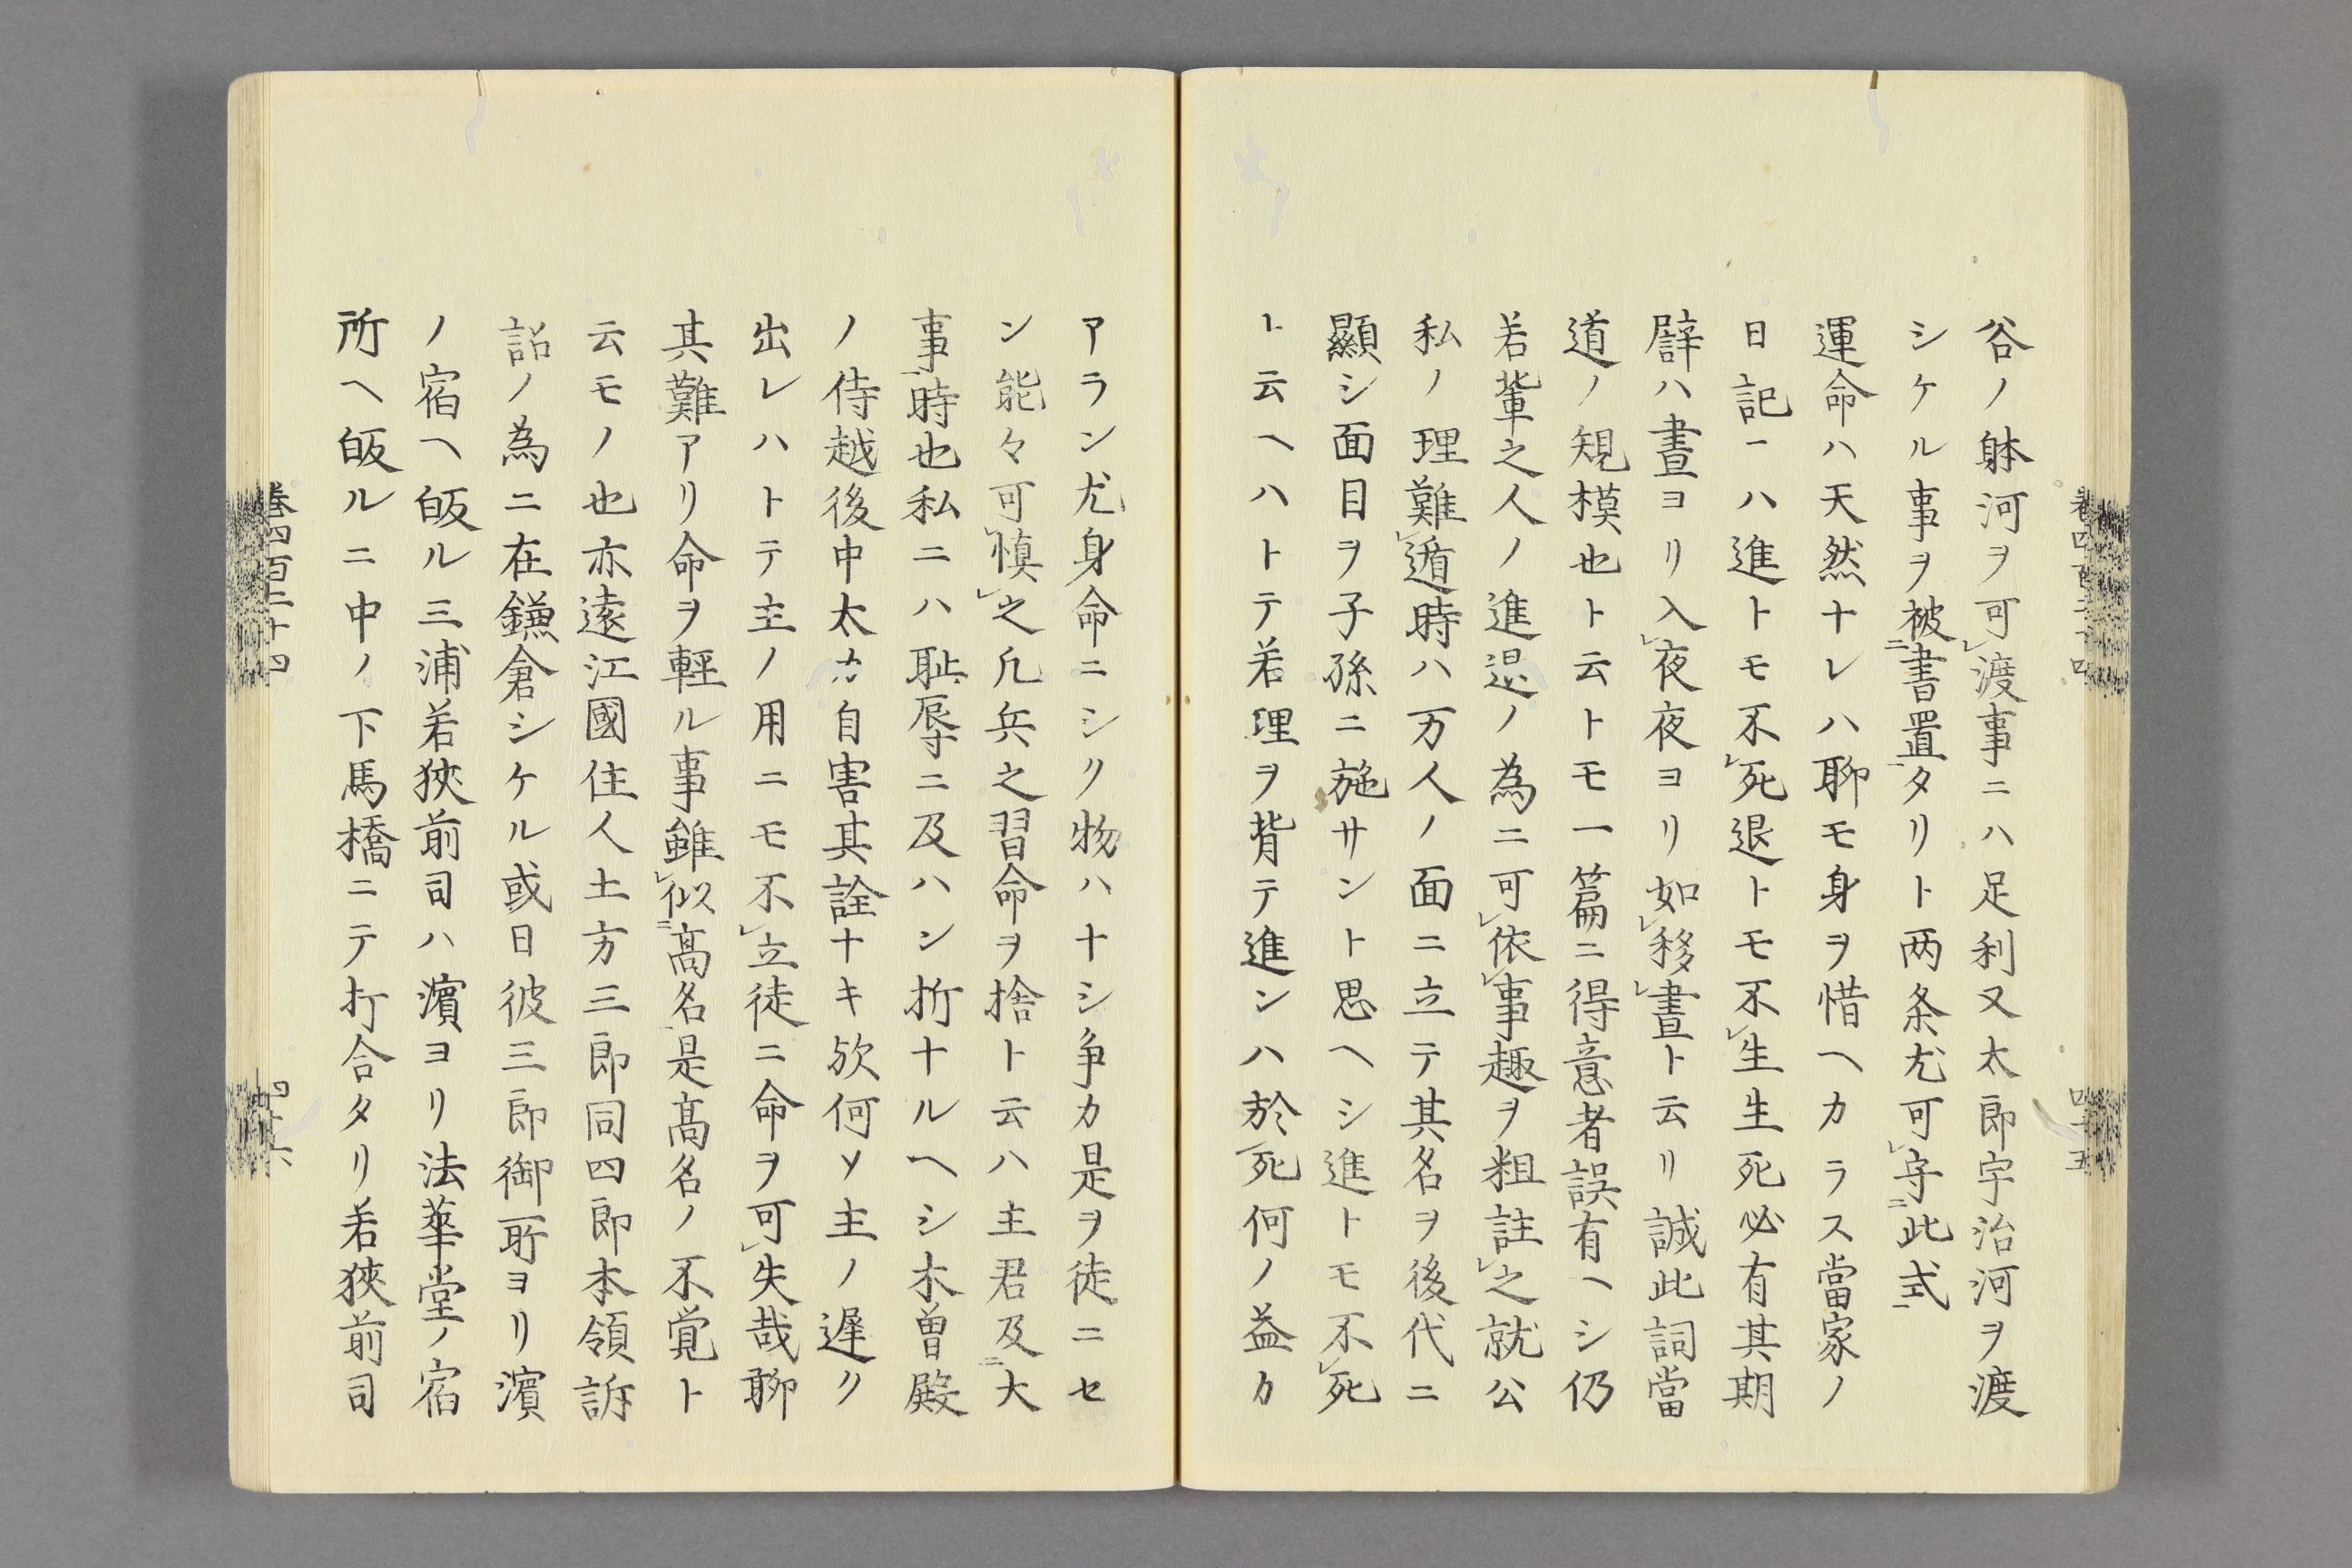 谷ノ躰河ヲ可㆑渡事ニハ足利又太郎宇治河ヲ渡
シケル事ヲ被㆓書置㆒タリト两条尤可㆑守㆓此式㆒
運命ハ天然ナレハ聊モ身ヲ惜ヘカラス當家ノ
日記ニハ進トモ不㆑死退トモ不㆑生生死必有其期
辟ハ晝ヨリ入㆑夜夜ヨリ如㆑移㆑晝ト云リ誠此詞當
道ノ規模也ト云トモ一篇ニ得意者誤有ヘシ仍
若輩之人ノ進退ノ為ニ可㆑依㆑事趣ヲ粗註㆑之就公
私ノ理難㆑遁時ハ万人ノ面ニ立テ其名ヲ後代ニ
顯シ面目ヲ子孫ニ施サント思ヘシ進トモ不㆑死
ト云ヘハトテ若理ヲ背テ進ンハ於死何ノ益カ
アラン尤身命ニシク物ハナシ争カ是ヲ徒ニセ
ン能々可㆑慎㆑之凢兵之習命ヲ捨ト云ハ主君及㆓大
事㆒時也私ニハ耻辱ニ及ハン折ナルヘシ木曽殿
ノ侍越後中太カ自害其詮ナキ欤何ソ主ノ遅ク
出レハトテ主ノ用ニモ不㆑立徒ニ命ヲ可㆑失哉聊
其難アリ命ヲ軽ル事雖㆑似㆓髙名㆒是髙名ノ不覚ト
云モノ也亦遠江國住人土方三郎同四郎本領訴
詔ノ為ニ在鎌倉シケル或日彼三郎御所ヨリ濱
ノ宿ヘ皈ル三浦若狹前司ハ濱ヨリ法華堂ノ宿
所ヘ皈ルニ中ノ下馬橋ニテ打合タリ若狹前司